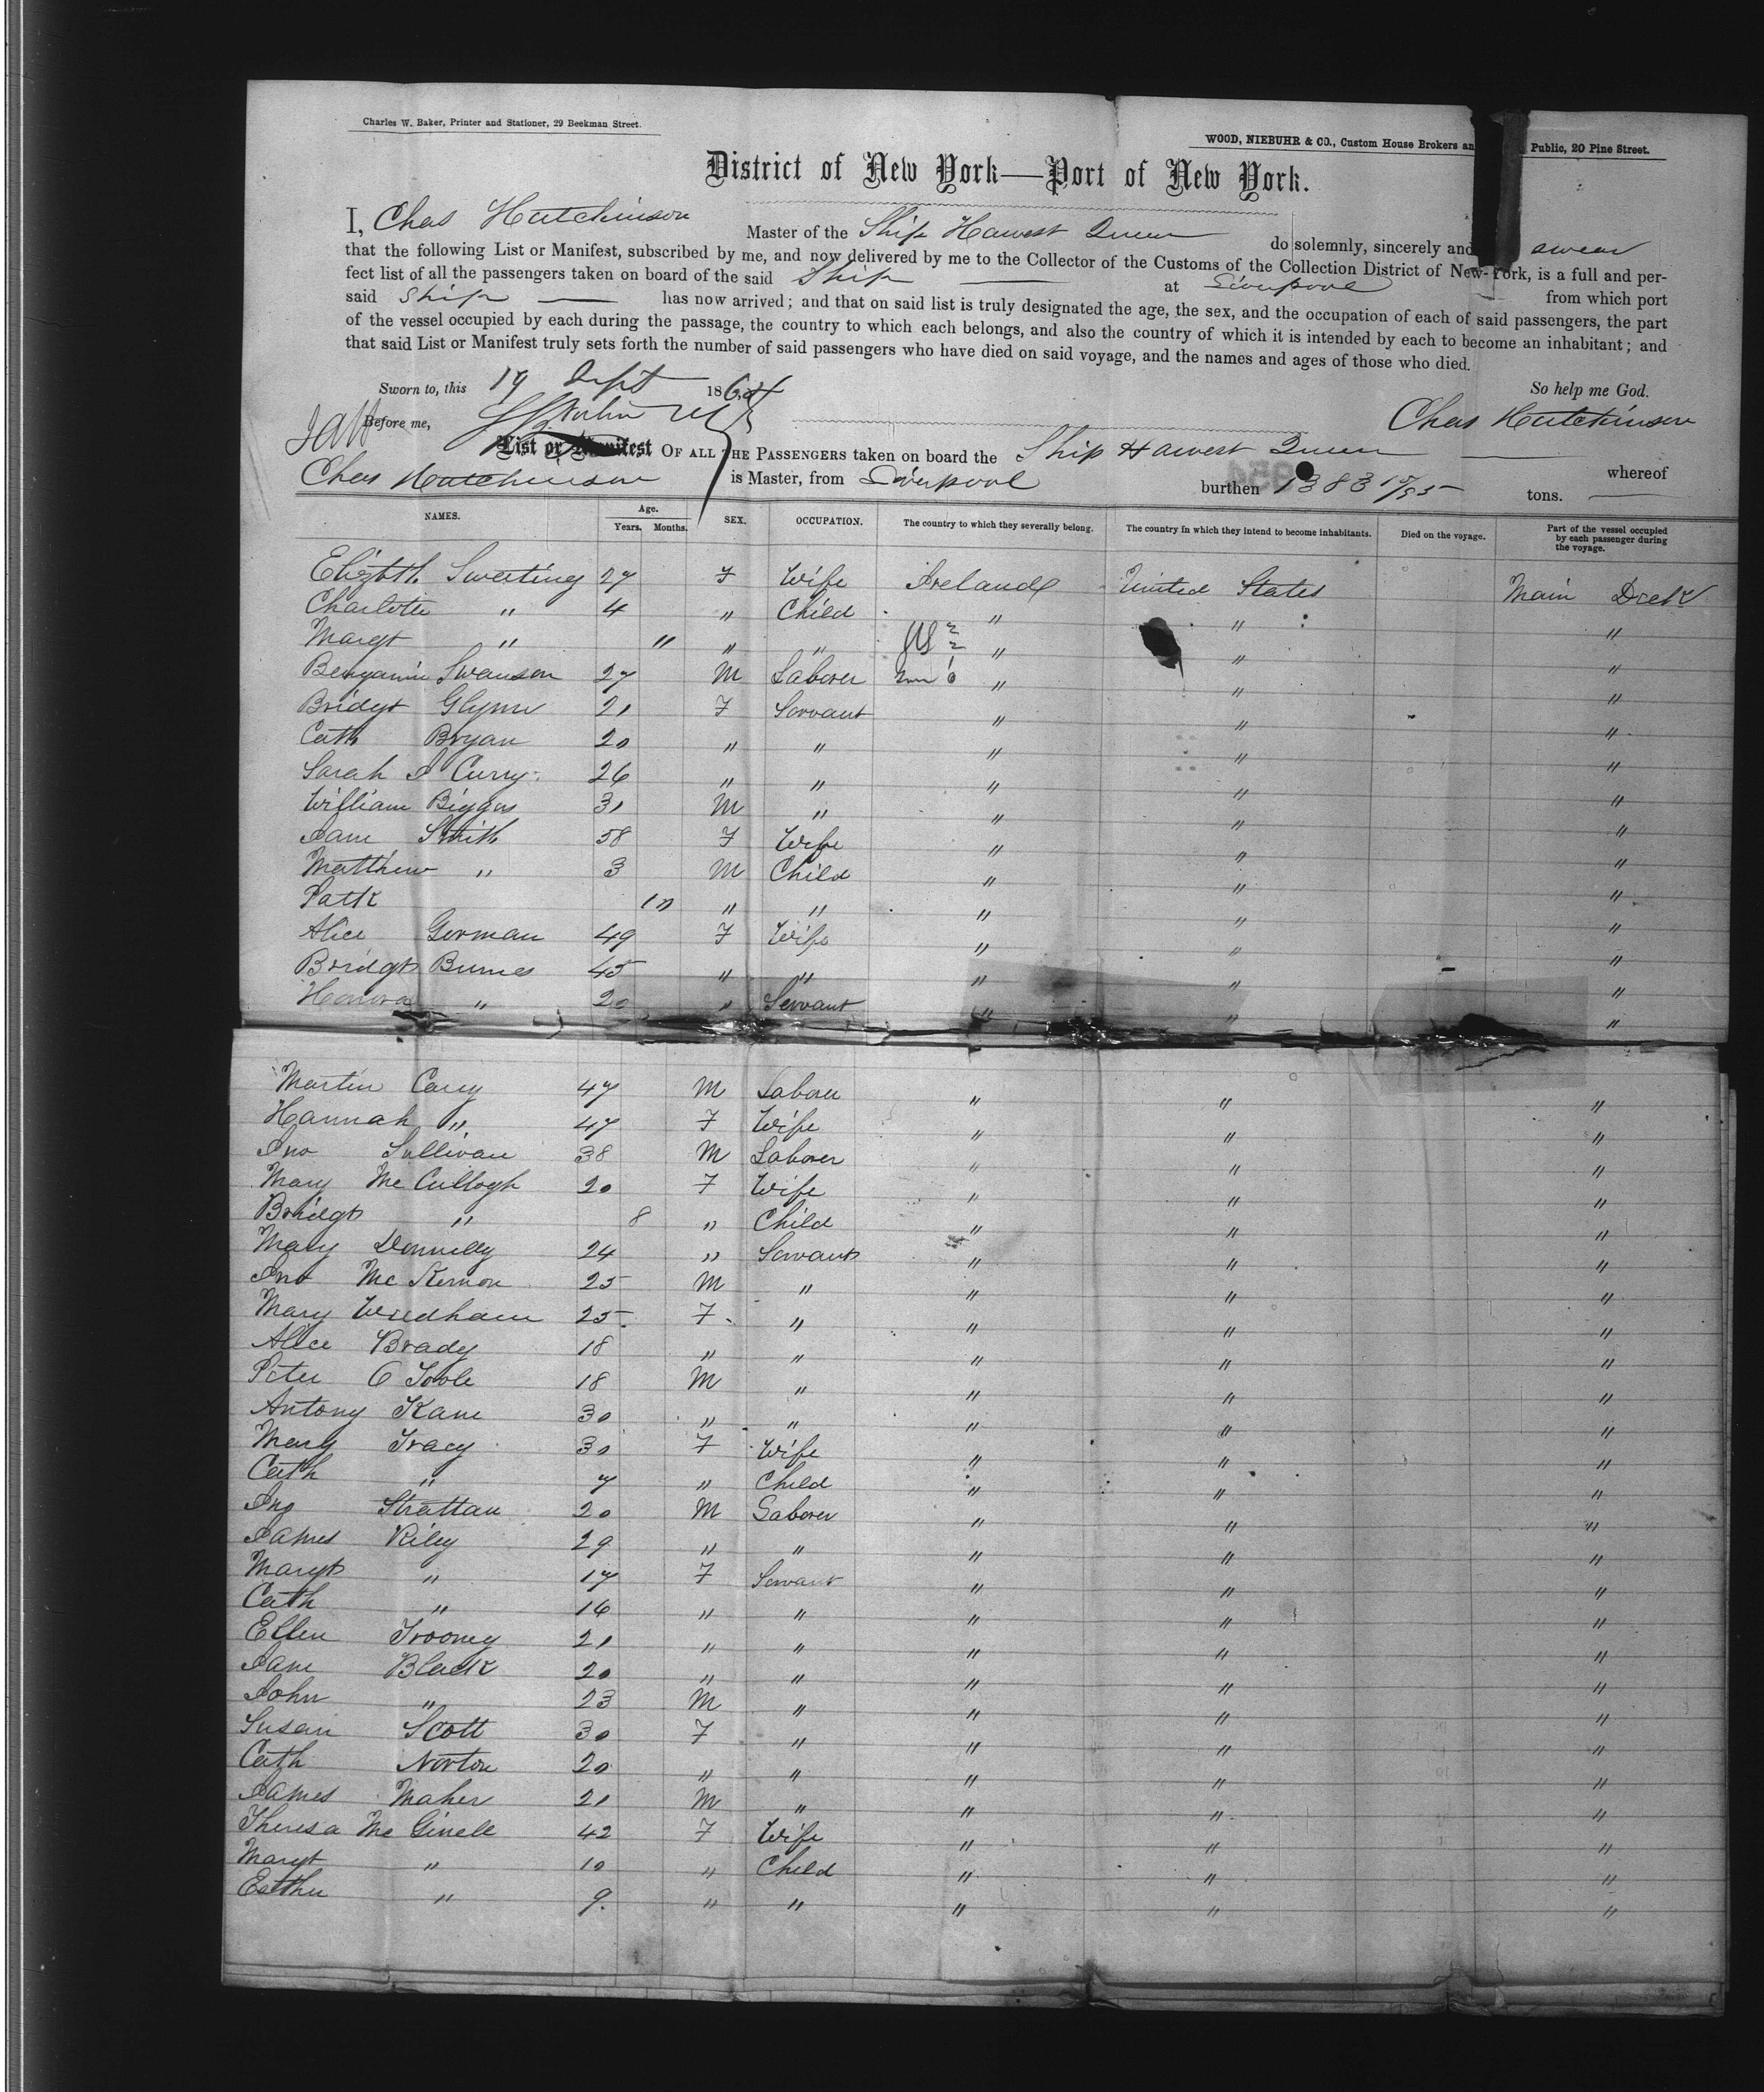 Charles W. Baker, Printer and Stationer, 29 Beekman Street.
WOOD, NIEBUHR & CO., Custom House Brokers an Public, 20 Pine Street.
District of New York—Port of New York.
I, Chas Hutchinson Master of the Ship Harvest Queen do solemnly, sincerely and swear
that the following List or Manifest, subscribed by me, and now delivered by me to the Collector of the Customs of the Collection District of New-York, is a full and per-
fect list of all the passengers taken on board of the said Ship at Liverpool from which port
said Ship has now arrived; and that on said list is truly designated the age, the sex, and the occupation of each of said passengers, the part
of the vessel occupied by each during the passage, the country to which each belongs, and also the country of which it is intended by each to become an inhabitant; and
that said List or Manifest truly sets forth the number of said passengers who have died on said voyage, and the names and ages of those who died.
Sworn to, this 19 Sept 1864 So help me God.
Before me, Chas Hutchinson
List or Manifest OF ALL THE PASSENGERS taken on board the Ship Harvest Queen whereof
Chas Hutchinson is Master, from Liverpool burthen 1383 tons.
NAMES. Age. Years. Months. SEX. OCCUPATION. The country to which they severally belong. The country in which they intend to become inhabitants. Died on the voyage. Part of the vessel occupied by each passenger during the voyage.
Elizbth Sweeting 27 F Wife Ireland United States Main Deck
Charlotte " 4 " Child " " "
Margt " " " " " " "
Benjamin Swanson 27 M Laborer " " "
Bridgt Glynn 21 F Servant " " "
Cath Bryan 20 " " " " "
Sarah J Curry 26 " " " " "
William Biggar 31 M " " " "
Jane Smith 58 F Wife " " "
Matthew " 3 M Child " " "
Patk 10 " " " " "
Alice Gorman 49 F Wife " " "
Bridgt Burnes 45 " " " " "
Honora " 20 " Servant " " "
Martin Carey 47 M Laborer " " "
Hannah " 47 F Wife " " "
Jno Sullivan 38 M Laborer " " "
Mary McCullogh 20 F Wife " " "
Bridgt " 8 " Child " " "
Mary Donnelly 24 " Servant " " "
Jno McKernon 25 M " " " "
Mary Weedham 25 F " " " "
Alice Brady 18 " " " " "
Peter O Toole 18 M " " " "
Antony Kane 30 " " " " "
Mary Tracy 30 F Wife " " "
Cath " 7 " Child " " "
Jno Strattan 20 M Laborer " " "
James Riley 29 " " " " "
Margt " 17 F Servant " " "
Cath " 16 " " " " "
Ellen Trooney 21 " " " " "
Jane Black 20 " " " " "
John " 23 M " " " "
Susan Scott 30 F " " " "
Cath Norton 20 " " " " "
James Maher 21 M " " " "
Theresa McGinell 42 F Wife " " "
Margt " 10 " Child " " "
Esther " 9 " " " " "